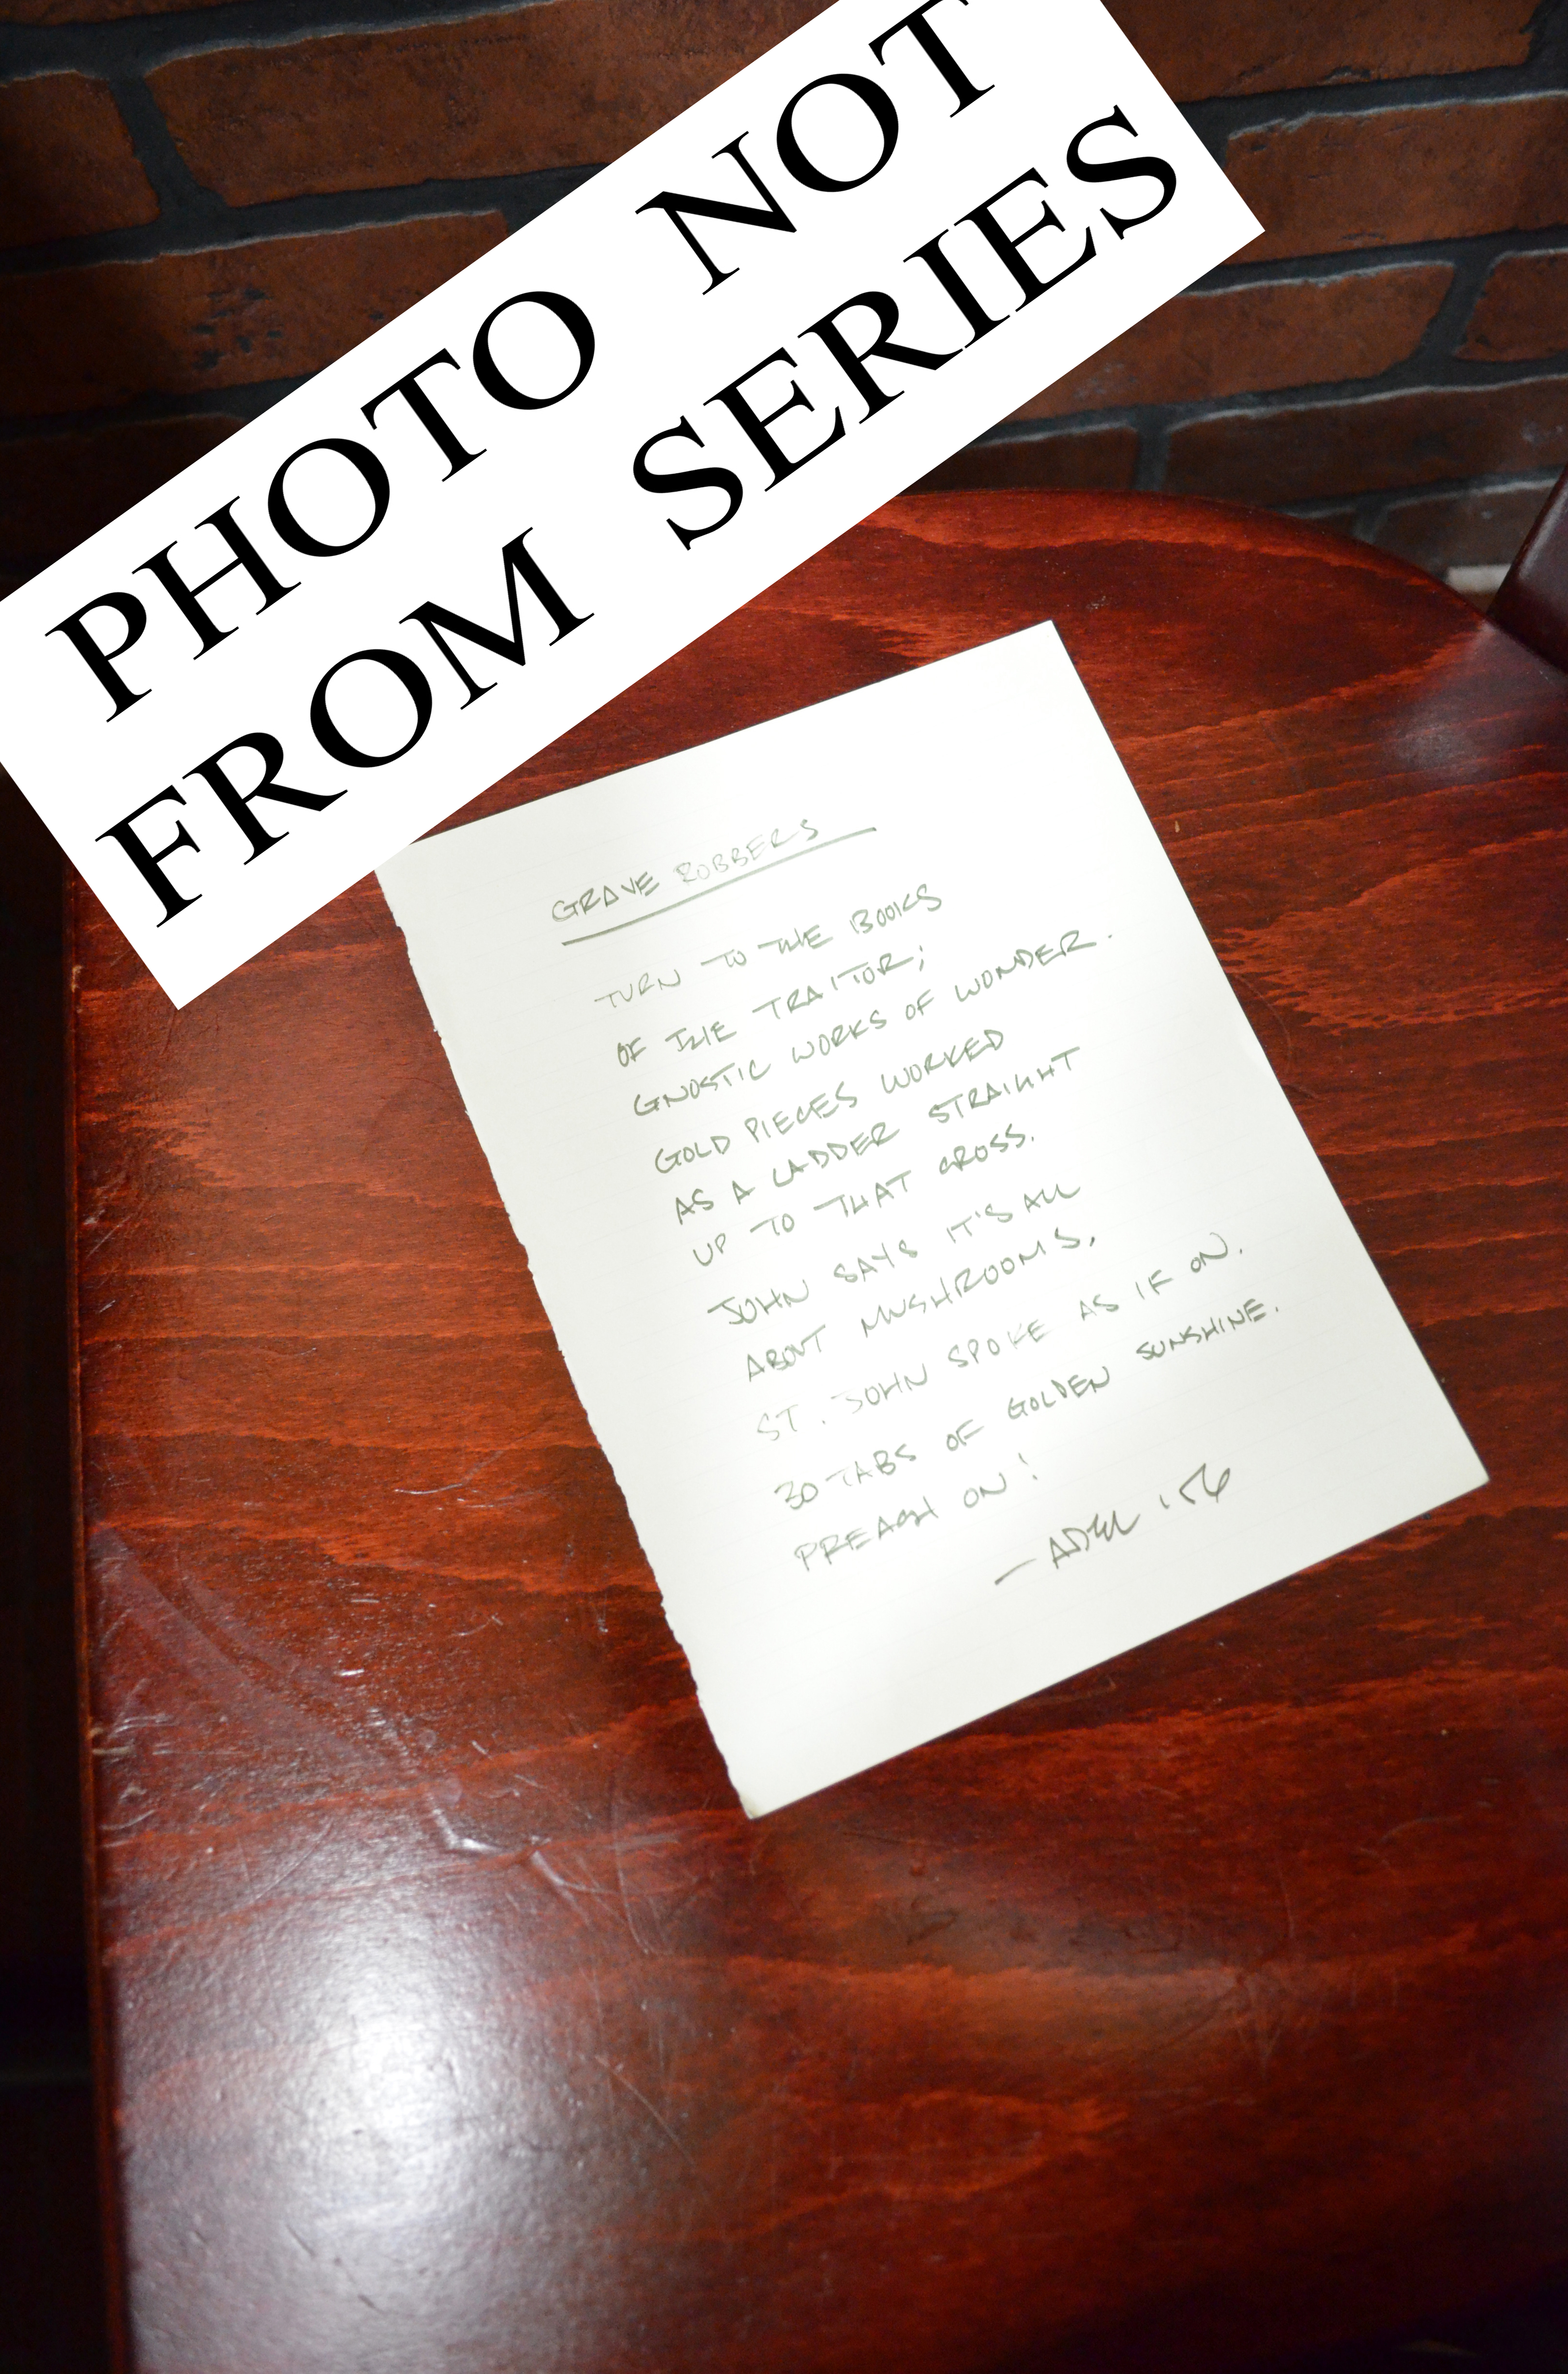 PHOTO NOT
FROM SERIES
GRAVE ROBBERS
TURN TO THE BOOKS
OF THE TRAITOR;
GNOSTIC WORKS OF WONDER.
GOLD PIECES WORKED
AS A LADDER STRAIGHT
UP TO THAT CROSS.
JOHN SAYS IT'S ALL
ABOUT MUSHROOMS.
ST. JOHN SPOKE AS IF ON.
30 TABS OF GOLDEN SUNSHINE.
PREACH ON!